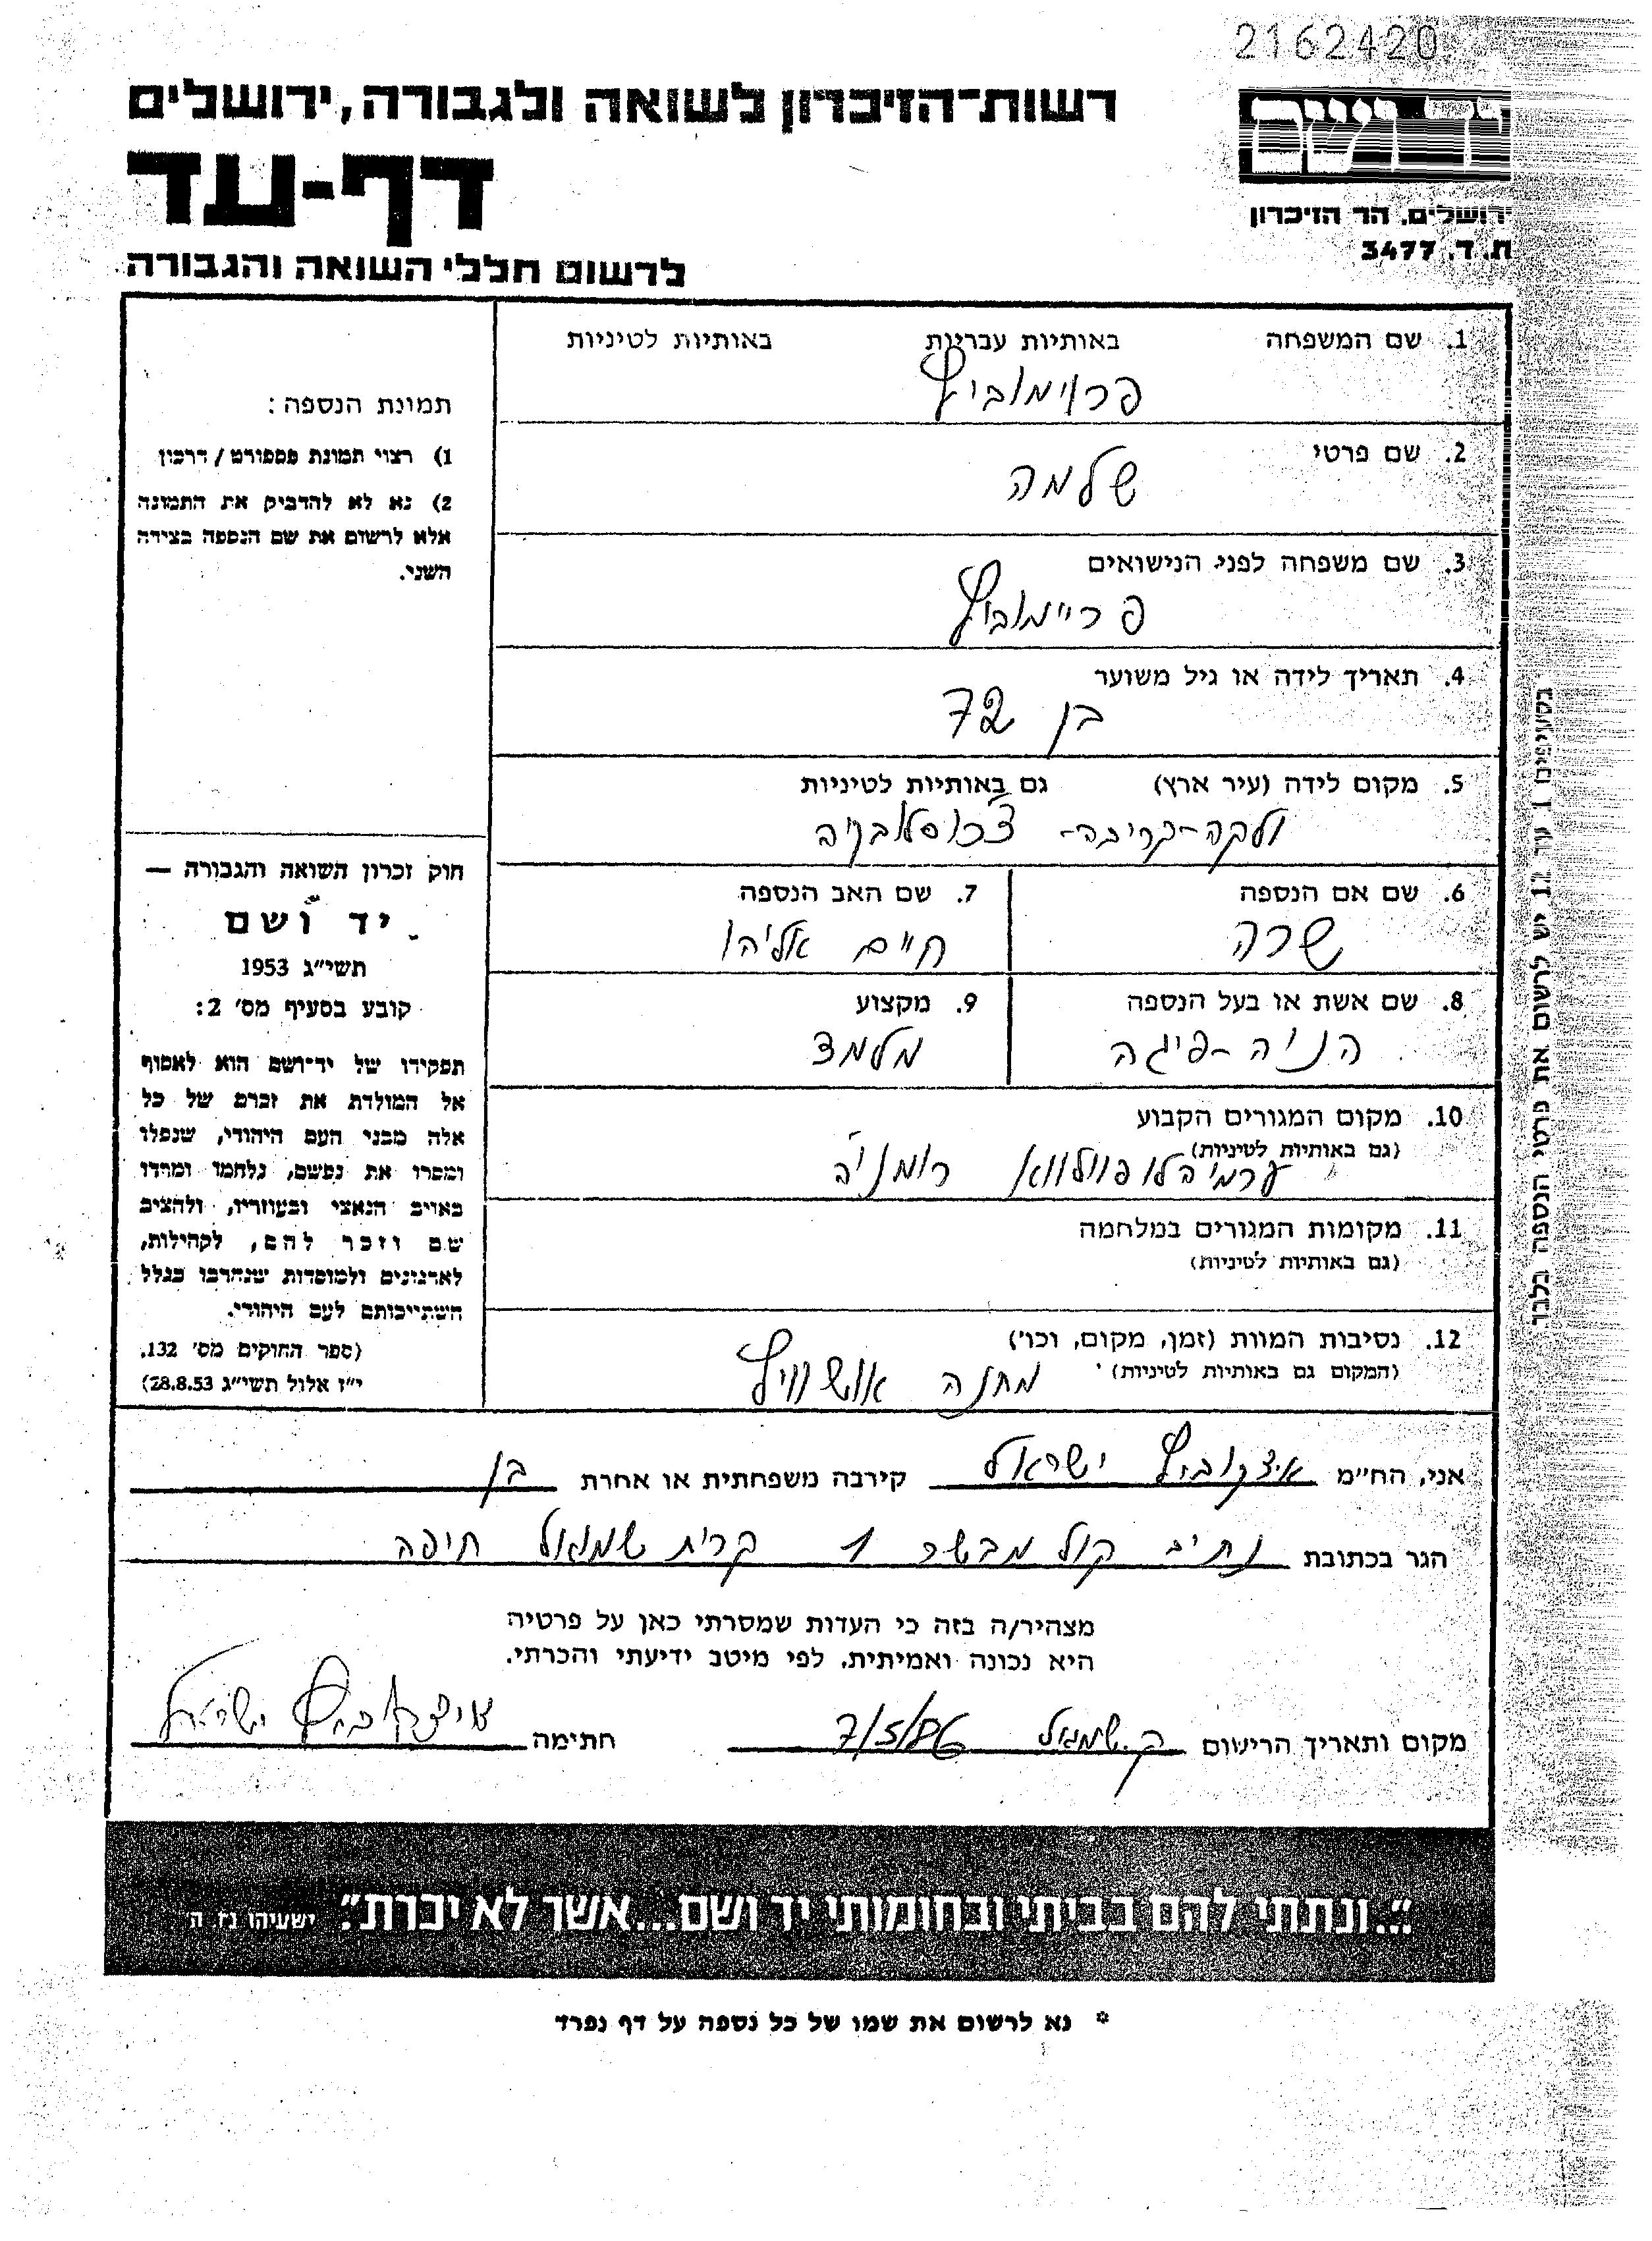 2162420
רשות-הזיכרון לשואה ולגבורה, ירושלים
יד ושם
דף-עד
ירושלים, הר הזיכרון
ת. ד. 3477
לרשום חללי השואה והגבורה
1. שם המשפחה באותיות עבריות באותיות לטיניות
פרוימוביץ
2. שם פרטי
שלמה
3. שם משפחה לפני הנישואים
פריימוביץ
4. תאריך לידה או גיל משוער
בן 72
5. מקום לידה (עיר ארץ) גם באותיות לטיניות
ולקה-קריבה- צ'כוסלובקיה
6. שם אם הנספה 7. שם האב הנספה
שרה חיים אליהו
8. שם אשת או בעל הנספה 9. מקצוע
הניה-פיגה מלמד
10. מקום המגורים הקבוע
(גם באותיות לטיניות)
רומניה
11. מקומות המגורים במלחמה
(גם באותיות לטיניות)
12. נסיבות המוות (זמן, מקום, וכו')
(המקום גם באותיות לטיניות)
מחנה אושוויץ
תמונת הנספה:
1) רצוי תמונת פספורט / דרכון
2) נא לא להדביק את התמונה
אלא לרשום את שם הנספה בצידה
השני.
חוק זכרון השואה והגבורה —
יד ושם
תשי"ג 1953
קובע בסעיף מס' 2:
תפקידו של יד-ושם הוא לאסוף
אל המולדת את זכרם של כל
אלה מבני העם היהודי, שנפלו
ומסרו את נפשם, נלחמו ומרדו
באויב הנאצי ובעוזריו, ולהציב
שם וזכר להם, לקהילות,
לארגונים ולמוסדות שנחרבו בגלל
השתייכותם לעם היהודי.
(ספר החוקים מס' 132,
י"ז אלול תשי"ג 28.8.53)
בסעיפים 1 עד 12 יש לרשום את פרטי הנספה בלבד
אני, הח"מ איצקוביץ ישראל קירבה משפחתית או אחרת בן
הגר בכתובת נתיב קול מבשר 1 קרית שמואל חיפה
מצהיר/ה בזה כי העדות שמסרתי כאן על פרטיה
היא נכונה ואמיתית, לפי מיטב ידיעתי והכרתי.
מקום ותאריך הרישום ק. שמואל 7/5/86 חתימה איצקוביץ ישראל
"...ונתתי להם בביתי ובחומותי יד ושם...אשר לא יכרת". ישעיהו נ"ו ה
* נא לרשום את שמו של כל נספה על דף נפרד